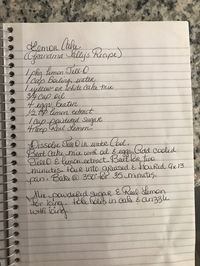 Lemon Cake
(Grandma Sally's Recipe)
1 pkg Lemon Jell-O
1 cup boiling water
1 yellow or white cake mix
3/4 cup oil
4 eggs beaten
lemon extract
1 cup powdered sugar
4 tbsp Real Lemon
Dissolve Jell-O in water. Cool.
Beat cake mix and oil & eggs. Add cooled
Jello & lemon extract. Beat for two
minutes. Pour into greased & floured 9x13
pan. Bake @ 350° for 35 minutes.
Mix powdered sugar & Real Lemon
for icing. Poke holes in cake & drizzle
with icing.